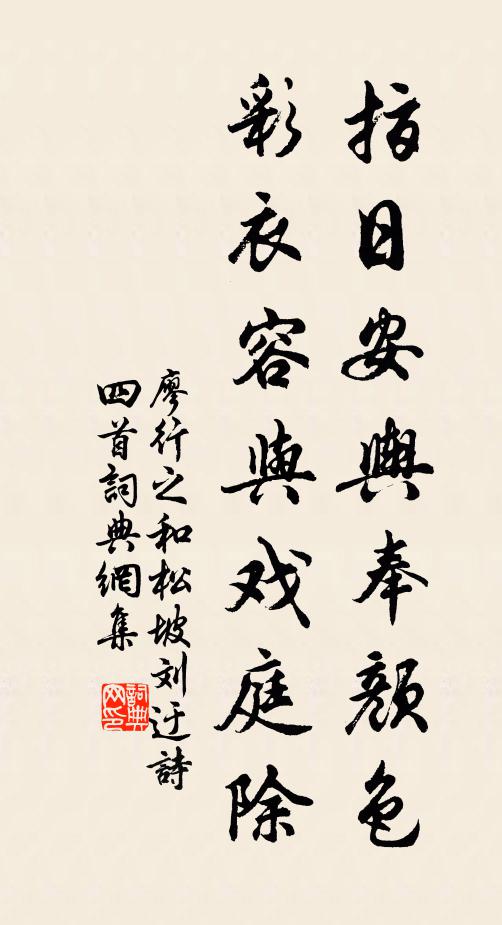 指日安輿奉顏色
彩衣容與戏庭除
廖行之和松坡刘迂詩
四首詞典網集
詞典网印